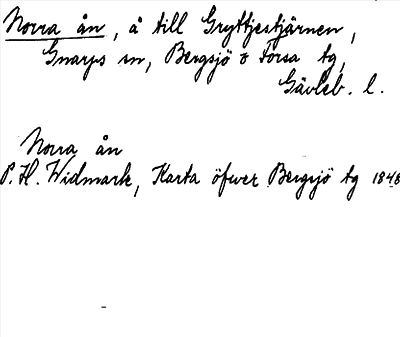 Norra ån, å till Gryttjestjärnen,
Gnarps sn, Bergsjö o Forsa tg,
Gävleb. l.
Norra ån
P. H. Widmark, Karta öfver Bergsjö tg 1848